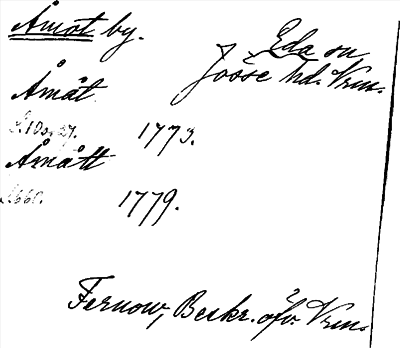 Åmot by.
Eda sn
Jösse hd. Vrm.
Åmåt
1773.
Åmått
1779.
Fernow, Beskr. öfv. Vrm.